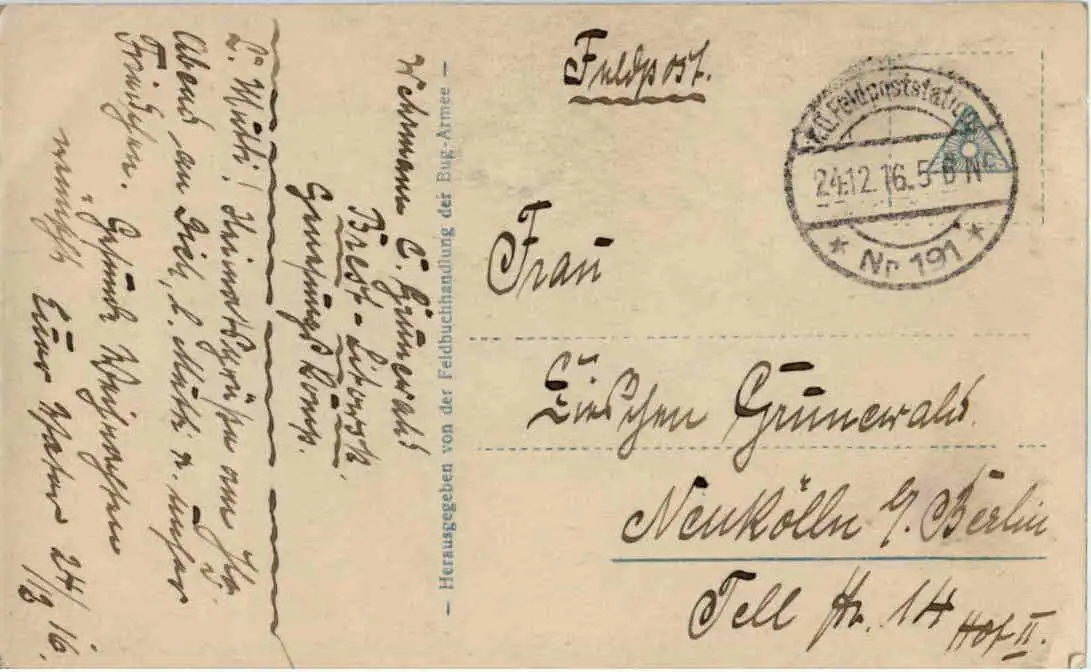 Feldpost.
K.D. Feldpoststation
24.12.16. 5-6 Nc
* Nr. 191 *
Frau
Lieschen Grunewald.
Neukölln b/. Berlin
Tell Str. 14
Hof II.
Wehrmann E. Grunewald
Brest-Litowsk
Genesungs Komp.
– Herausgegeben von der Feldbuchhandlung der Bug-Armee –
L. Mutti! Heimatsgrüße am Hg.
Abend an Dich, l. Mutti u. unser
Friedchen. Gesunde Weihnachten
wünscht Euer Vater 24/12 16.